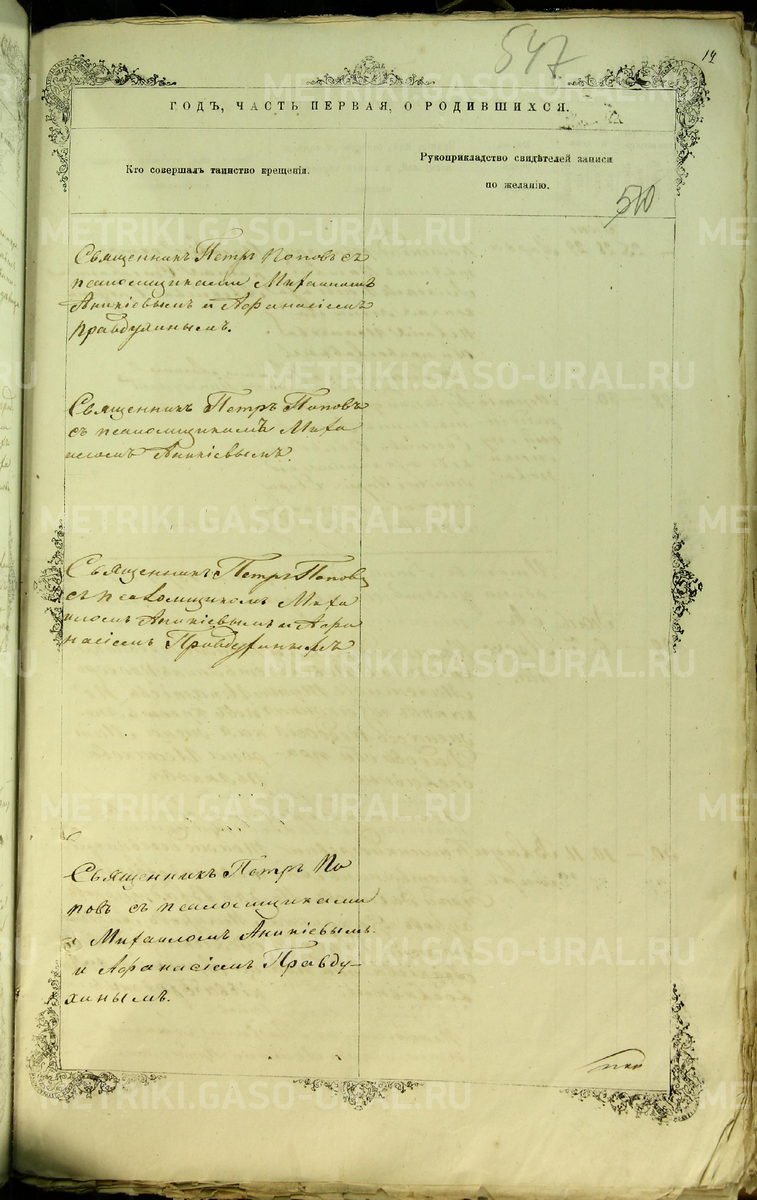 547
14
ГОДЪ, ЧАСТЬ ПЕРВАЯ, О РОДИВШИХСЯ.
Кто совершалъ таинство крещенія.
Рукоприкладство свидѣтелей записи
по желанію.
510
Священникъ Петръ Поповъ съ
псаломщиками Михаиломъ
Аникіевымъ и Афанасіемъ
Правдухинымъ.
Священникъ Петръ Поповъ
съ псаломщикомъ Миха
иломъ Аникіевымъ.
Священникъ Петръ Поповъ
съ псаломщикомъ Миха
иломъ Аникіевымъ и Афа
насіемъ Правдухинымъ
Священникъ Петръ По
повъ съ псаломщиками
Михаиломъ Аникіевымъ
и Афанасіемъ Правду-
хинымъ.
METRIKI.GASO-URAL.RU